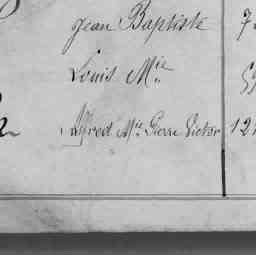 Jean Baptiste 7
Louis Mie
Alfred Mie Pierre Victor 12